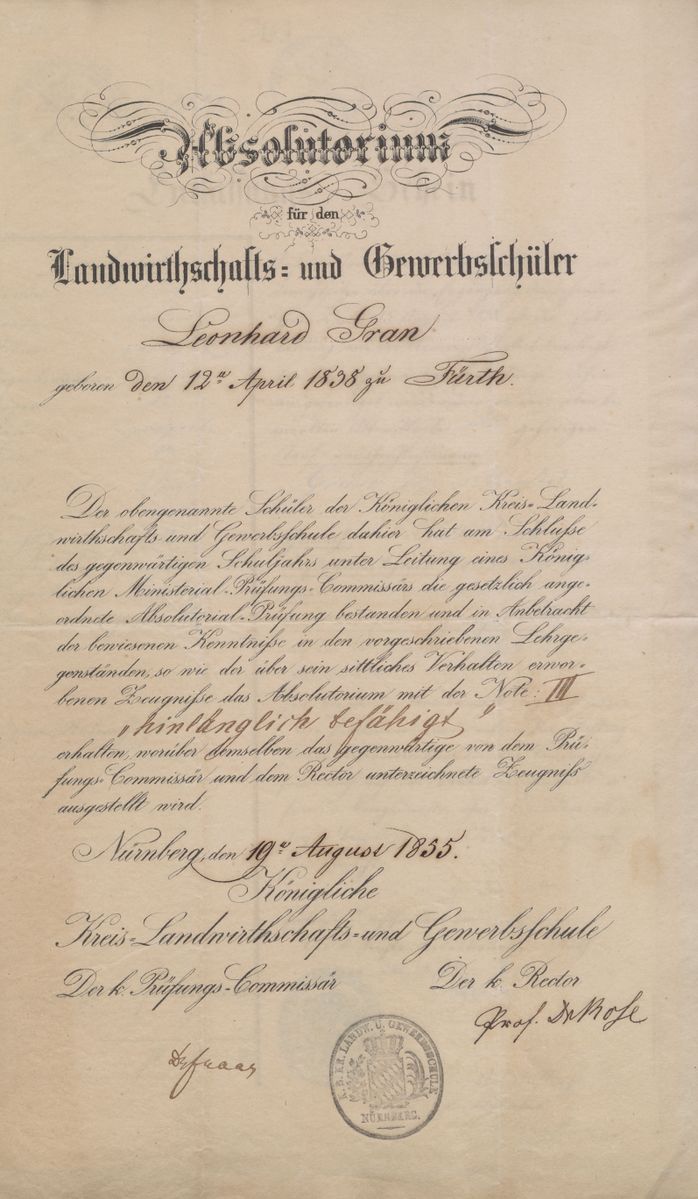 Absolutorium
für den
Landwirthschafts- und Gewerbsschüler
Leonhard Gran
geboren den 12n April 1838 zu Fürth.
Der obengenannte Schüler der Königlichen Kreis-Land-
wirthschafts und Gewerbsschule dahier hat am Schluße
des gegenwärtigen Schuljahrs unter Leitung eines König-
lichen Ministerial-Prüfungs-Commissärs die gesetzlich ange-
ordnete Absolutorial-Prüfung bestanden und in Anbetracht
der bewiesenen Kenntniße in den vorgeschriebenen Lehrge-
genständen, so wie der über sein sittliches Verhalten erwor-
benen Zeugniße das Absolutorium mit der Note: III
"hinlänglich befähigt"
erhalten, worüber demselben das gegenwärtige von dem Prü-
fungs-Commissär und dem Rector unterzeichnete Zeugniß
ausgestellt wird.
Nürnberg, den 19n August 1855.
Königliche
Kreis-Landwirthschafts- und Gewerbsschule
Der k. Prüfungs-Commissär Der k. Rector
Prof. Dr Rose
Dr Fraas
K. B. KR. LANDW. U. GEWERBSSCHULE
NÜRNBERG.